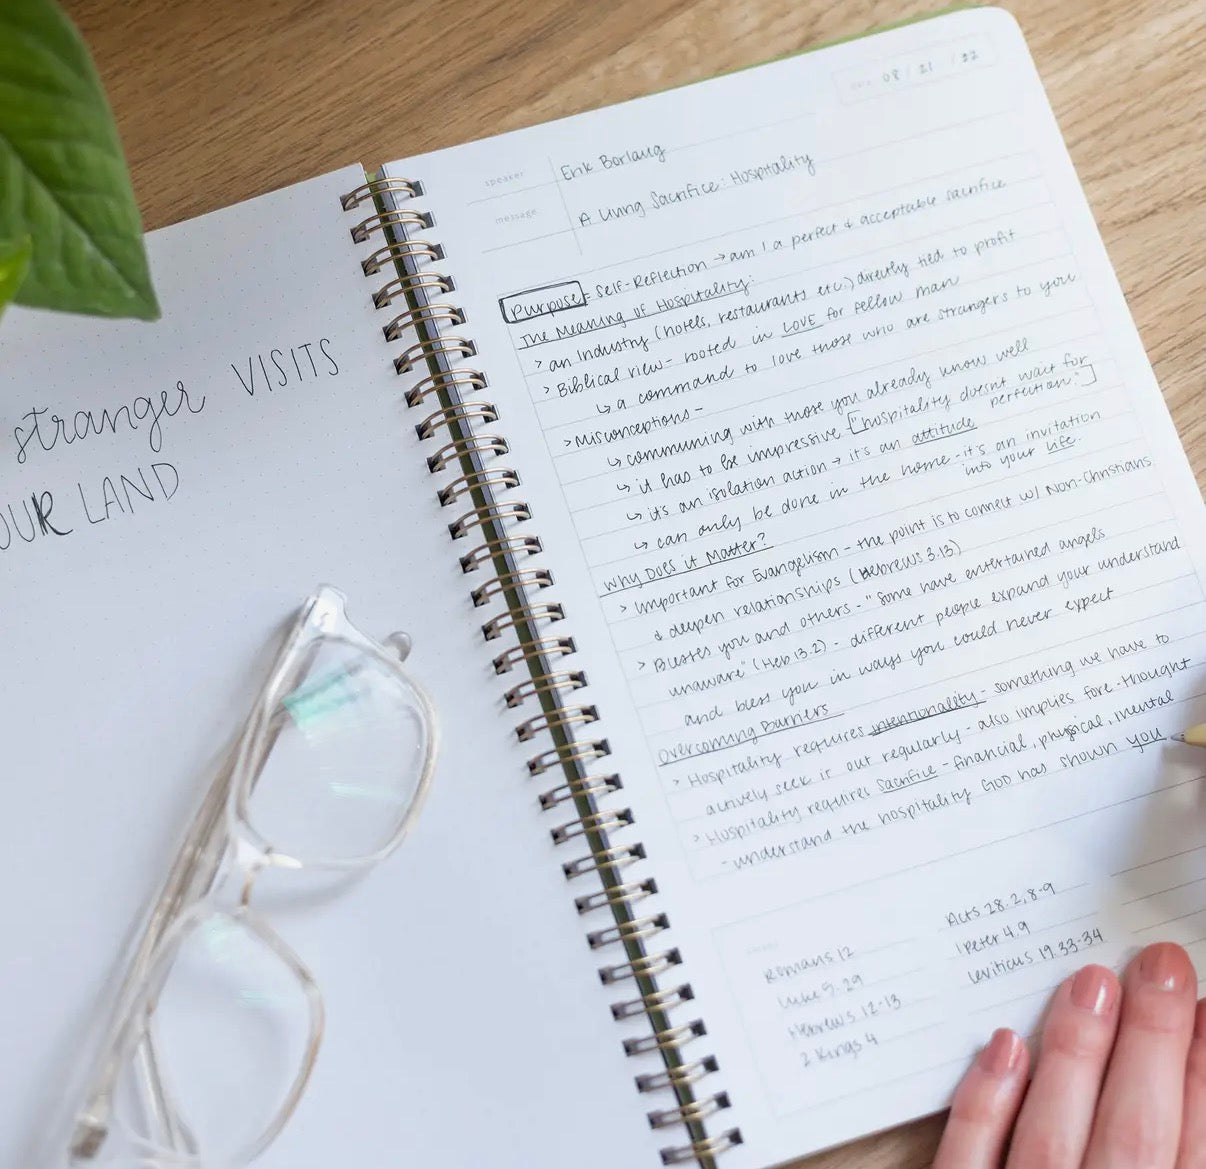 stranger VISITS
OUR LAND
08 / 21 / 22
speaker Erik Borlaug
message A Living Sacrifice: Hospitality
Purpose: Self-Reflection → am I a perfect & acceptable sacrifice
The Meaning of Hospitality:
> an Industry (hotels, restaurants etc.) directly tied to profit
> Biblical view - rooted in LOVE for fellow man
↳ a command to love those who are strangers to you
> Misconceptions -
↳ communing with those you already know well
↳ it has to be impressive ["hospitality doesnt wait for
perfection."]
↳ it's an isolation action → it's an attitude
↳ can only be done in the home - it's an invitation
into your life.
Why Does it Matter?
> Important for Evangelism - the point is to connect w/ Non-Christians
& deepen relationships (Hebrews 3.13)
> Blesses you and others - "Some have entertained angels
unaware" (Heb 13.2) - different people expand your understand
and bless you in ways you could never expect
Overcoming Barriers
> Hospitality requires intentionality - something we have to
actively seek it out regularly - also implies fore-thought
> Hospitality requires Sacrifice - financial, physical, mental
- understand the hospitality GOD has shown you
Romans 12
Luke 5.29
Hebrews 12-13
2 Kings 4
Acts 28.2, 8-9
1 Peter 4.9
Leviticus 19.33-34